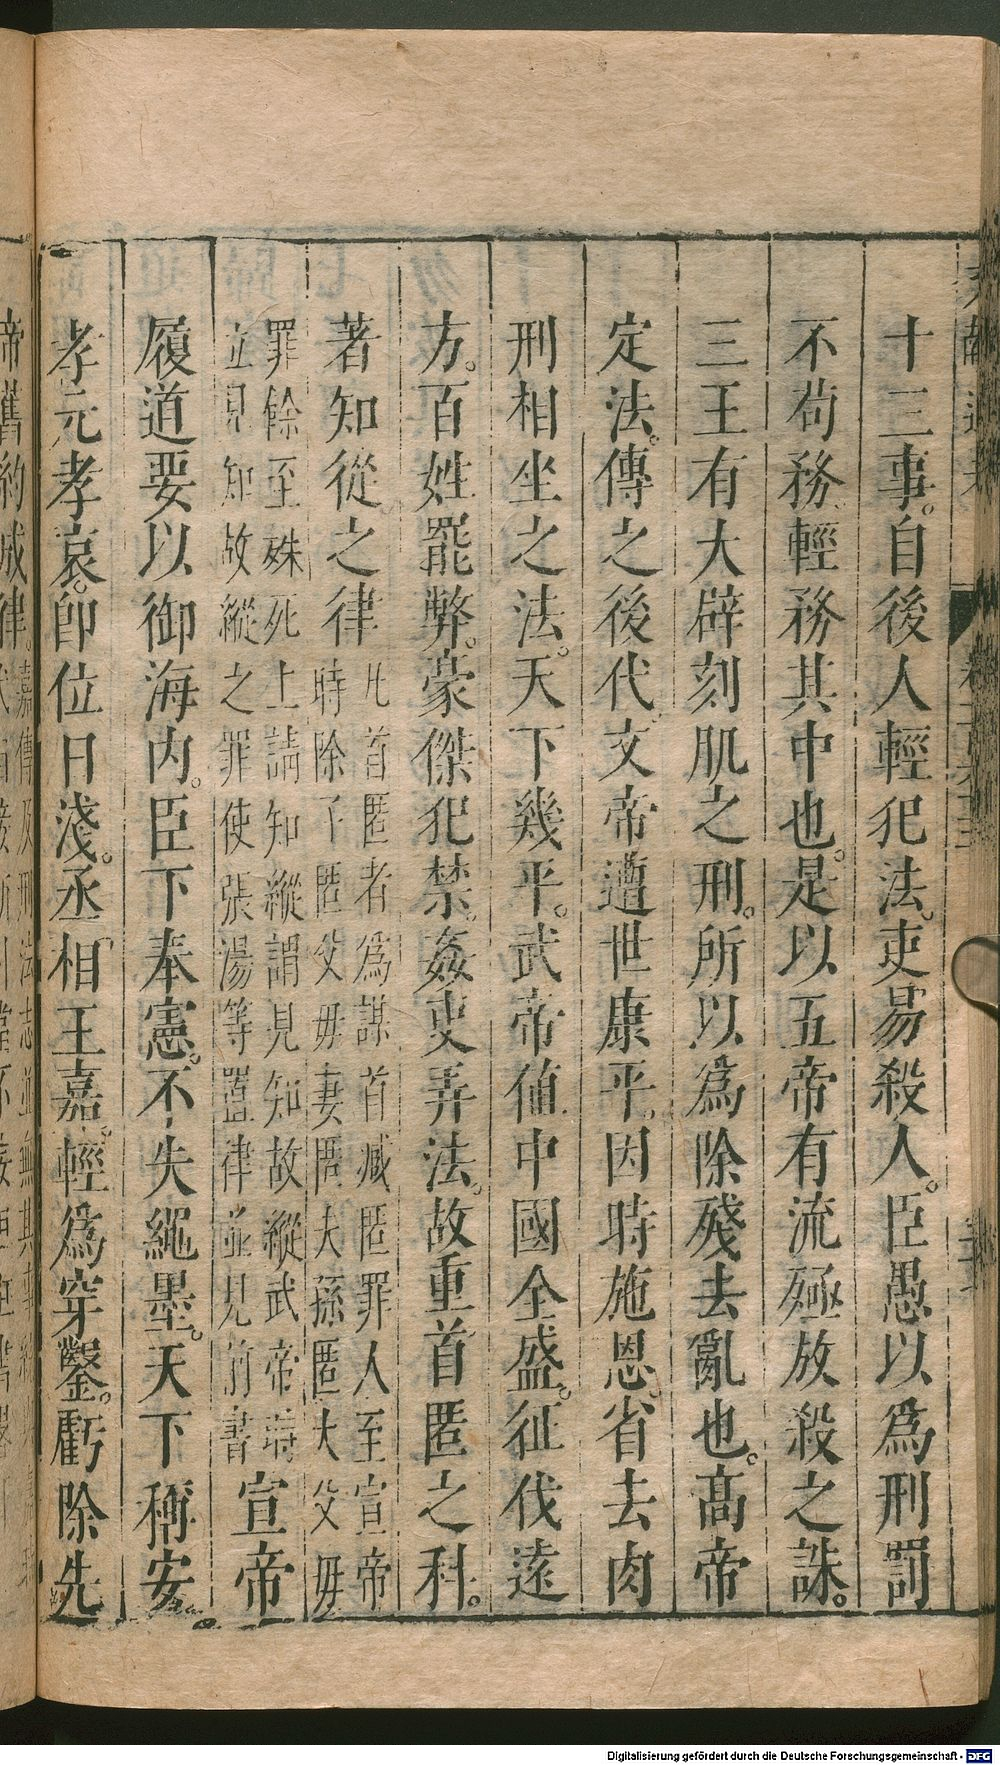 十三事。自後人輕犯法。吏易殺人。臣愚以爲刑罰
不茍務輕務其中也。是以五帝有流殛放殺之誅。
三王有大辟刻肌之刑。所以爲除殘去亂也。高帝
定法。傳之後代。文帝遭世康平。因時施恩。省去肉
刑相坐之法。天下幾平。武帝值中國全盛。征伐遠
方。百姓罷弊。豪傑犯禁。姦吏弄法。故重首匿之科。
著知從之律
凡首匿者爲謀首臧匿罪人至宣帝
時除子匿父毋妻匿夫孫匿大父毋
罪餘至殊死上請知縱謂見知故縱武帝時
立見知故縱之罪使張湯等著律並見前書
宣帝
履道要以御海内。臣下奉憲。不失繩墨。天下稱安。
孝元孝哀。卽位日淺。丞相王嘉。輕爲穿鑿。虧除先
帝舊約成律。
Digitalisierung gefördert durch die Deutsche Forschungsgemeinschaft - DFG